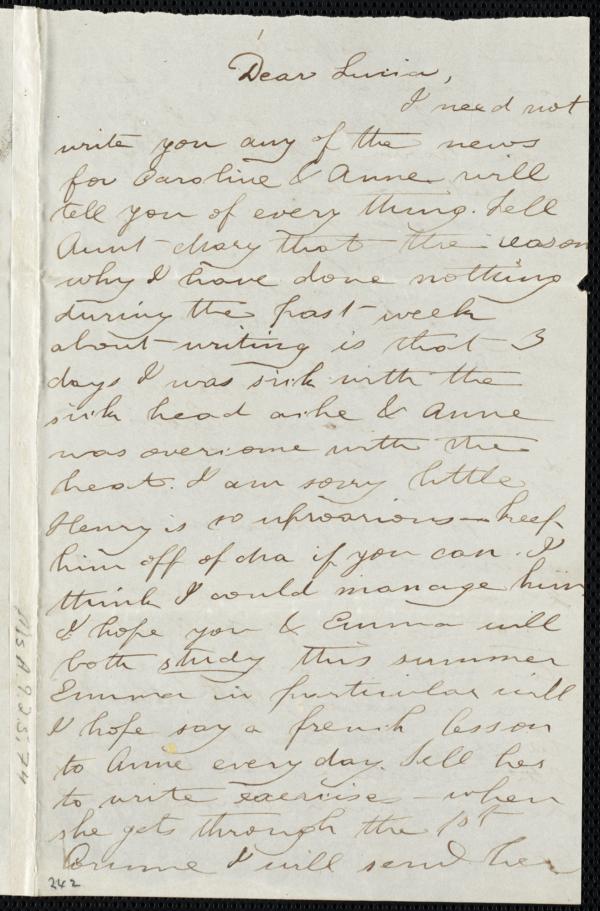 Dear Lucia,
I need not
write you any of the news
for Caroline & Anne will
tell you of every thing. Tell
Aunt Mary that the reason
why I have done nothing
during the past week
about writing is that 3
days I was sick with the
sick head ache & Anne
was overcome with the
heat. I am sorry little
Henry is so uproarious - keep
him off of Ma if you can. I
think I could manage him
I hope you & Emma will
both study this summer
Emma in particular will
I hope say a french lesson
to Anne every day. Tell her
to write exercises - when
she gets through the 1st
I will send her
Ms.A.9.2.5.74
242